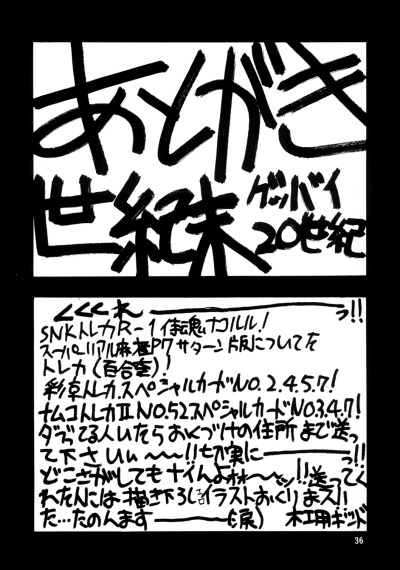 あとがき
世紀末
グッバイ
20世紀
くくくれ――――っ!!
SNKトレカR-1侍魂ナコルル!
スーパーリアル麻雀P7サターン版についてを
トレカ(百合室)!
彩京トレカスペシャルカードNO.2.4.5.7!
ナムコトレカⅡNO.52スペシャルカードNO3.4.7!
ダブってる人いたらおくづけの住所まで送っ
て下さいぃ〜〜!!切実に――――っ!!
どこさがしてもナイんよォォ〜〜ッ!!送ってく
れた人には描き下ろしイラストおくりまスい
た…たのんます――――(涙) 木工用ボンド
36